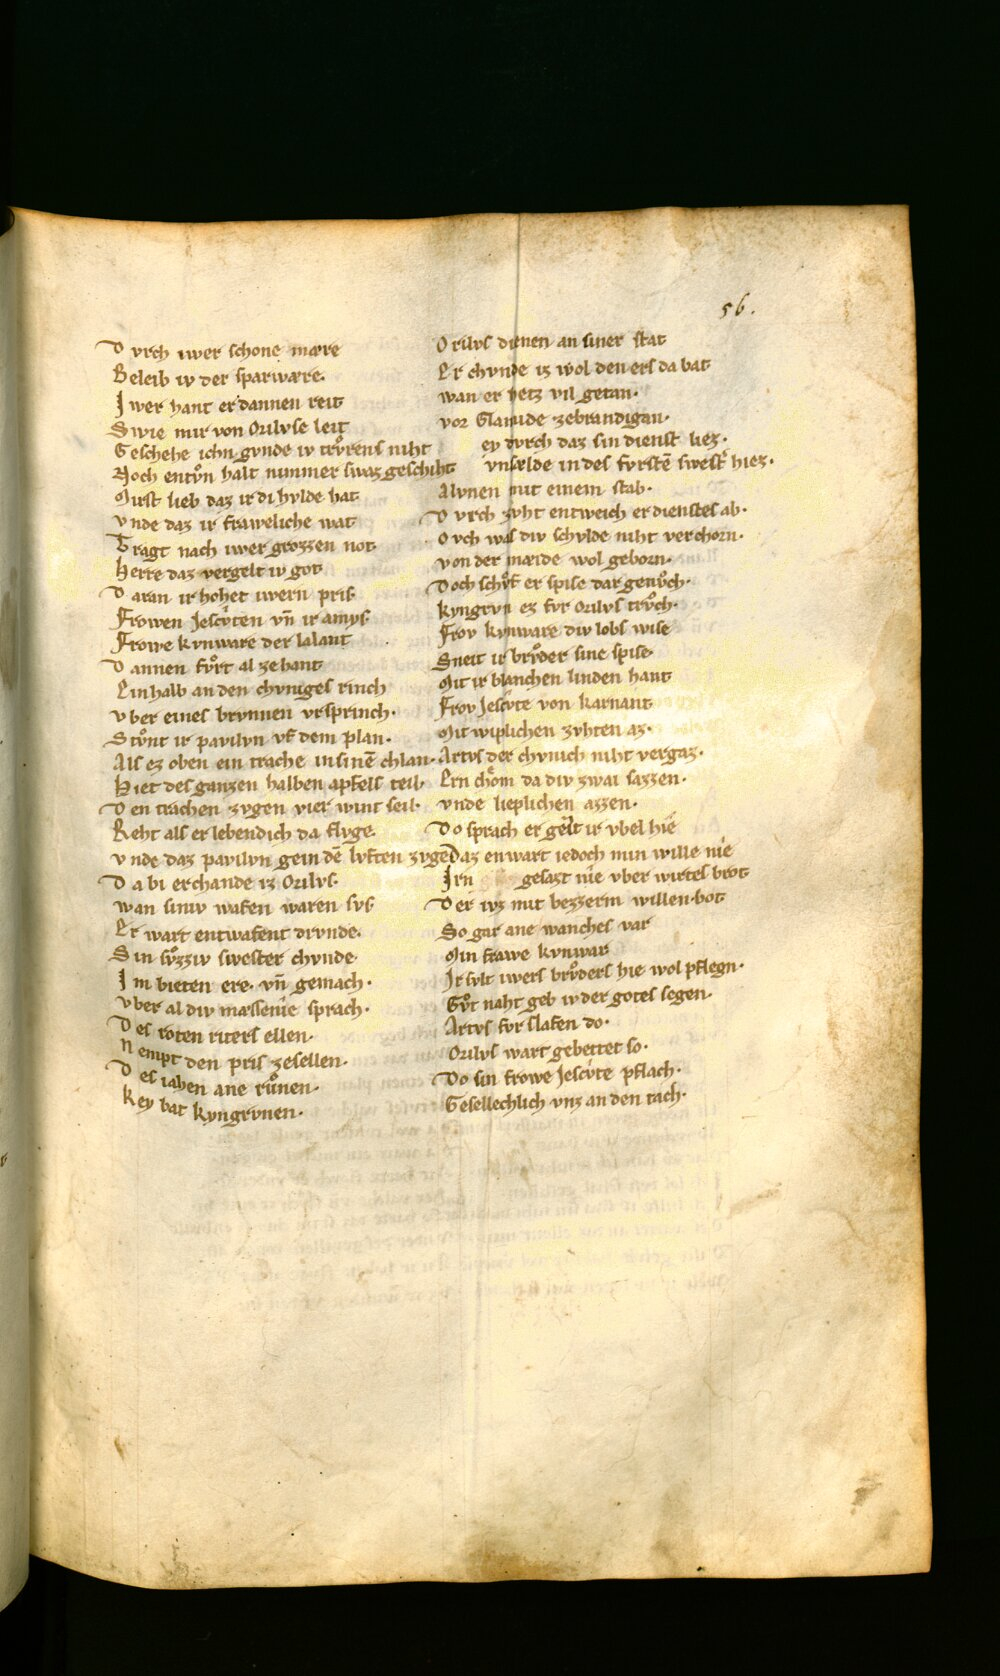 56.
Dvrch iwer schone mære
Beleib iv der sparwære.
Iwer hant er dannen reit
Swie mir von Orilvse leit
Geschehe ichn gvnde iv trv̊rens niht
Noch entv̊n halt nimmer swaz geschiht
Mirst lieb daz ir di hvlde hat
vnde daz ir fraweliche wat
Tragt nach iwer grozzen not
Herre daz vergelt iv got
Daran ir hohet iwern pris
Frowen Jescv̂ten vn̄ ir amys
Frowe kvnware der lalant
Dannen fv̊rt al zehant
Einhalb an den chvniges rinch
vber eines brvnnen vrsprinch.
Stv̊nt ir pavilvn vf dem plan.
Als ez oben ein trache in sinē chlan.
Hiet des ganzen halben apfels teil.
Den trachen zvgen vier wint seil.
Reht als er lebendich da flvge.
vnde daz pavilvn gein dē lvften zvge
Da bi erchande iz Orilvs.
wan siniv wafen waren svs
Er wart entwafent drvnde.
Sin sv̊zziv swester chvnde
Im bieten ere. vn̄ gemach.
vber al div massenie sprach.
Des roten riters ellen.
Nempt den pris zesellen.
Des iahen ane rv̊nen.
Key bat kyngrvnen.
Orilvs dienen an siner stat
Er chvnde iz wol den ers da bat
wan er hetz vil getan.
vor Glamide zebrandigan.
ey dvrch daz sin dienst liez.
vnsælde in des fvrstē swest' hiez.
Alvnen mit einem stab.
Dvrch zvht entweich er dienstes ab.
Ovch was div schvlde niht verchorn.
von der mæide wol geborn.
Doch schv̊f er spise dar genv̊ch.
kyngrvn ez fvr Orilvs trv̊ch.
Frov kvnware div lobs wise
Sneit ir brv̊der sine spise
Mit ir blanchen linden hant
Frov Jescv̂te von karnant
Mit wiplichen zvhten az.
Artvs der chvnich niht vergaz.
Ern chȏm da div zwai sazzen.
vnde lieplichen azzen.
Do sprach er gēlt ir vbel hie
Daz enwart iedoch min wille nie
Irn gesazt nie vber wirtes brot
Der ivz mit bezzerm willen bot
So gar ane wanches var
Min frawe kvnwar
Ir svlt iwers brv̊ders hie wol pflegn.
Gv̊t naht geb iv der gotes segen.
Artvs fvr slafen do.
Orilvs wart gebettet so.
Do sin frowe Jescv̂te pflach.
Gesellechlich vnz an den tach.